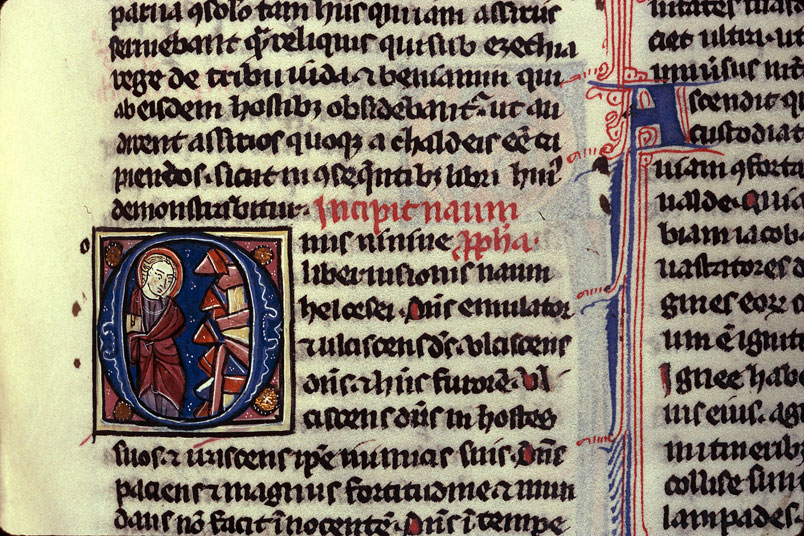 parua ꝯsolo tam huis quiiam assirus
seruiebant qͣreliquis qui sub ezechia
rege de tribu iuda ⁊ beniamin qui
ab eisdem hostibꝫ obsidebantͬ ut au
dirent assirios quoqꝫ a chaldeis eē ca
piendos. sicut in ꝯseqͥntibꝫ libri huiꝰ
demonstrabitur. Incipit naum
ꝓpha.
O
nus niniue
liber uisionis naum
helcesei. Dn̄s emulator
⁊ ulciscens dn̄s. Vlciscens
dn̄s. ⁊ hn̄s furorē. Vl
ciscens dn̄s in hostes
suos. ⁊ irascens ip̄e inimicis suis. Dn̄s
paciens ⁊ magnus fortitudine ⁊ mun
dans nō faciet īnocentē. Dn̄s ī tempe
uitates
ciet ultra. ut
A
scendit q
custodiat
uiam ꝯforta
ualde. Quia
biam iacob
uastatores
gines eorꝝ
um ē igniti
Ignee habe
ius eius. ag
in itineribꝫ
collise sunt
lampades.